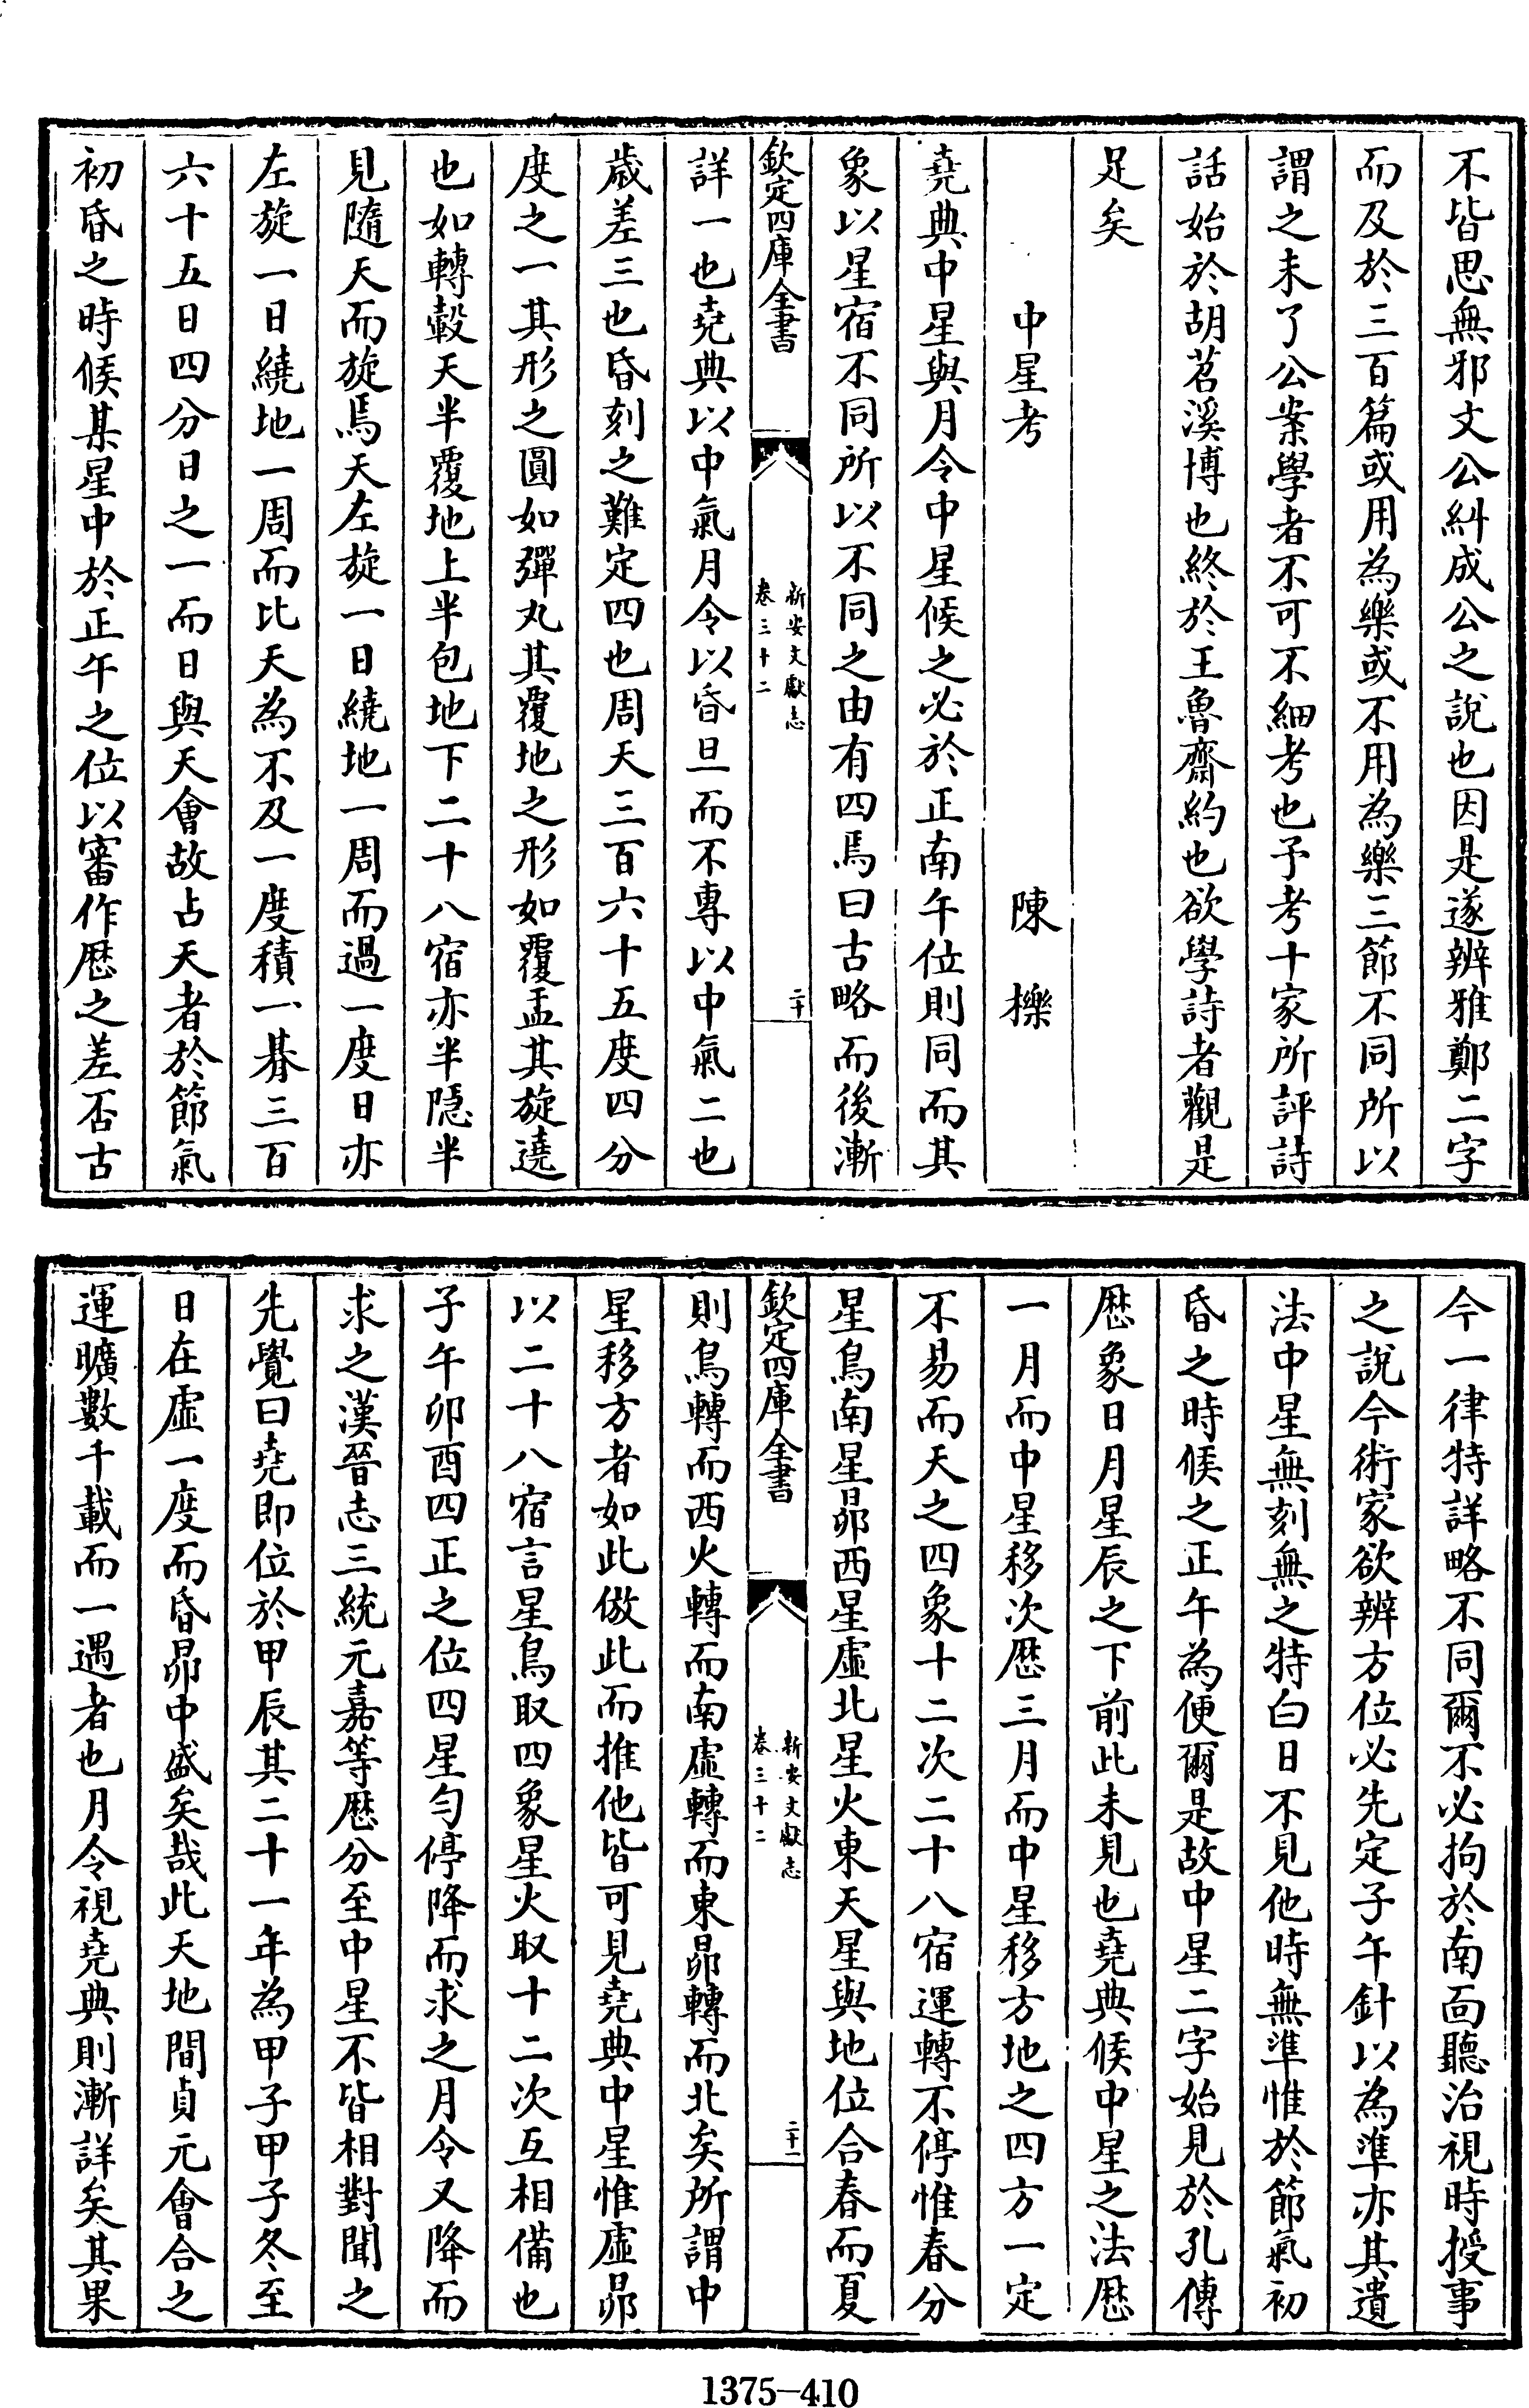 不皆思無邪文公糾成公之說也因是遂辨雅鄭二字
而及於三百篇或用為樂或不用為樂三節不同所以
謂之未了公案學者不可不細考也予考十家所評詩
話始於胡苕溪博也終於王魯齋約也欲學詩者觀是
足矣
中星考 陳櫟
堯典中星與月令中星候之必於正南午位則同而其
象以星宿不同所以不同之由有四焉曰古略而後漸
欽定四庫全書 新安文獻志 卷三十二 二十
詳一也堯典以中氣月令以昏旦而不專以中氣二也
歲差三也昏刻之難定四也周天三百六十五度四分
度之一其形之圓如彈丸其覆地之形如覆盂其旋遶
也如轉轂天半覆地上半包地下二十八宿亦半隱半
見隨天而旋焉天左旋一日繞地一周而過一度日亦
左旋一日繞地一周而比天為不及一度積一朞三百
六十五日四分日之一而日與天會故占天者於節氣
初昏之時候某星中於正午之位以審作厯之差否古
今一律特詳略不同爾不必拘於南面聽治視時授事
之說今術家欲辨方位必先定子午針以為準亦其遺
法中星無刻無之特白日不見他時無準惟於節氣初
昏之時候之正午為便爾是故中星二字始見於孔傳
厯象日月星辰之下前此未見也堯典候中星之法厯
一月而中星移次厯三月而中星移方地之四方一定
不易而天之四象十二次二十八宿運轉不停惟春分
星鳥南星昴西星虛北星火東天星與地位合春而夏
欽定四庫全書 新安文獻志 卷三十二 二十一
則鳥轉而西火轉而南虛轉而東昴轉而北矣所謂中
星移方者如此倣此而推他皆可見堯典中星惟虛昴
以二十八宿言星鳥取四象星火取十二次互相備也
子午卯酉四正之位四星勻停降而求之月令又降而
求之漢晉志三統元嘉等厯分至中星不皆相對聞之
先覺曰堯即位於甲辰其二十一年為甲子甲子冬至
日在虛一度而昏昴中盛矣哉此天地間貞元會合之
運曠數千載而一遇者也月令視堯典則漸詳矣其果
1375-410